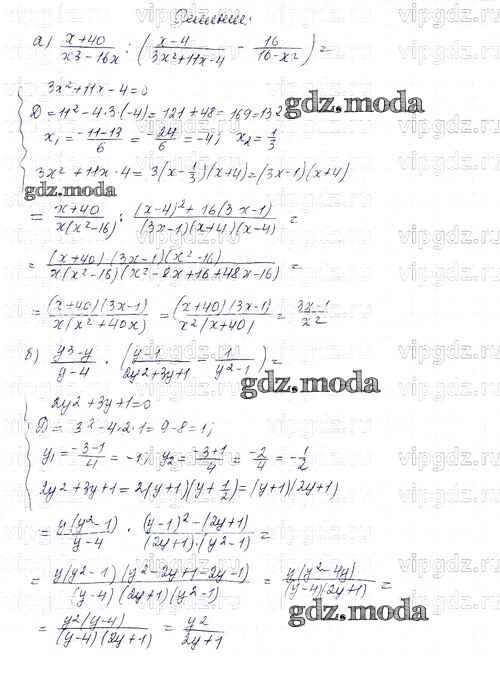 Решение.
а) (x+40)/(x3-16x) : ((x-4)/(3x²+11x-4) - 16/(16-x²)) =
3x²+11x-4=0
D=11²-4·3·(-4)=121+48=169=13²
x₁=(-11-13)/6 = -24/6 = -4; x₂=1/3
3x²+11x-4=3(x-1/3)(x+4)=(3x-1)(x+4)
= (x+40)/(x(x²-16)) : ((x-4)²+16(3x-1))/((3x-1)(x+4)(x-4)) =
= ((x+40)(3x-1)(x²-16))/(x(x²-16)(x²-8x+16+48x-16)) =
= ((x+40)(3x-1))/(x(x²+40x)) = ((x+40)(3x-1))/(x²(x+40)) = (3x-1)/x²
б) (y3-y)/(y-4) · ((y-1)/(2y²+3y+1) - 1/(y²-1)) =
2y²+3y+1=0
D=3²-4·2·1=9-8=1;
y₁=(-3-1)/4=-1; y₂=(-3+1)/4=-2/4=-1/2
2y²+3y+1=2(y+1)(y+1/2)=(y+1)(2y+1)
= (y(y²-1))/(y-4) · ((y-1)²-(2y+1))/((2y+1)·(y²-1)) =
= (y(y²-1)(y²-2y+1-2y-1))/((y-4)(2y+1)(y²-1)) = (y(y²-4y))/((y-4)(2y+1)) =
= (y2(y-4))/((y-4)(2y+1)) = y2/(2y+1)
gdz.moda
gdz.moda
gdz.moda
gdz.moda
vipgdz.ru